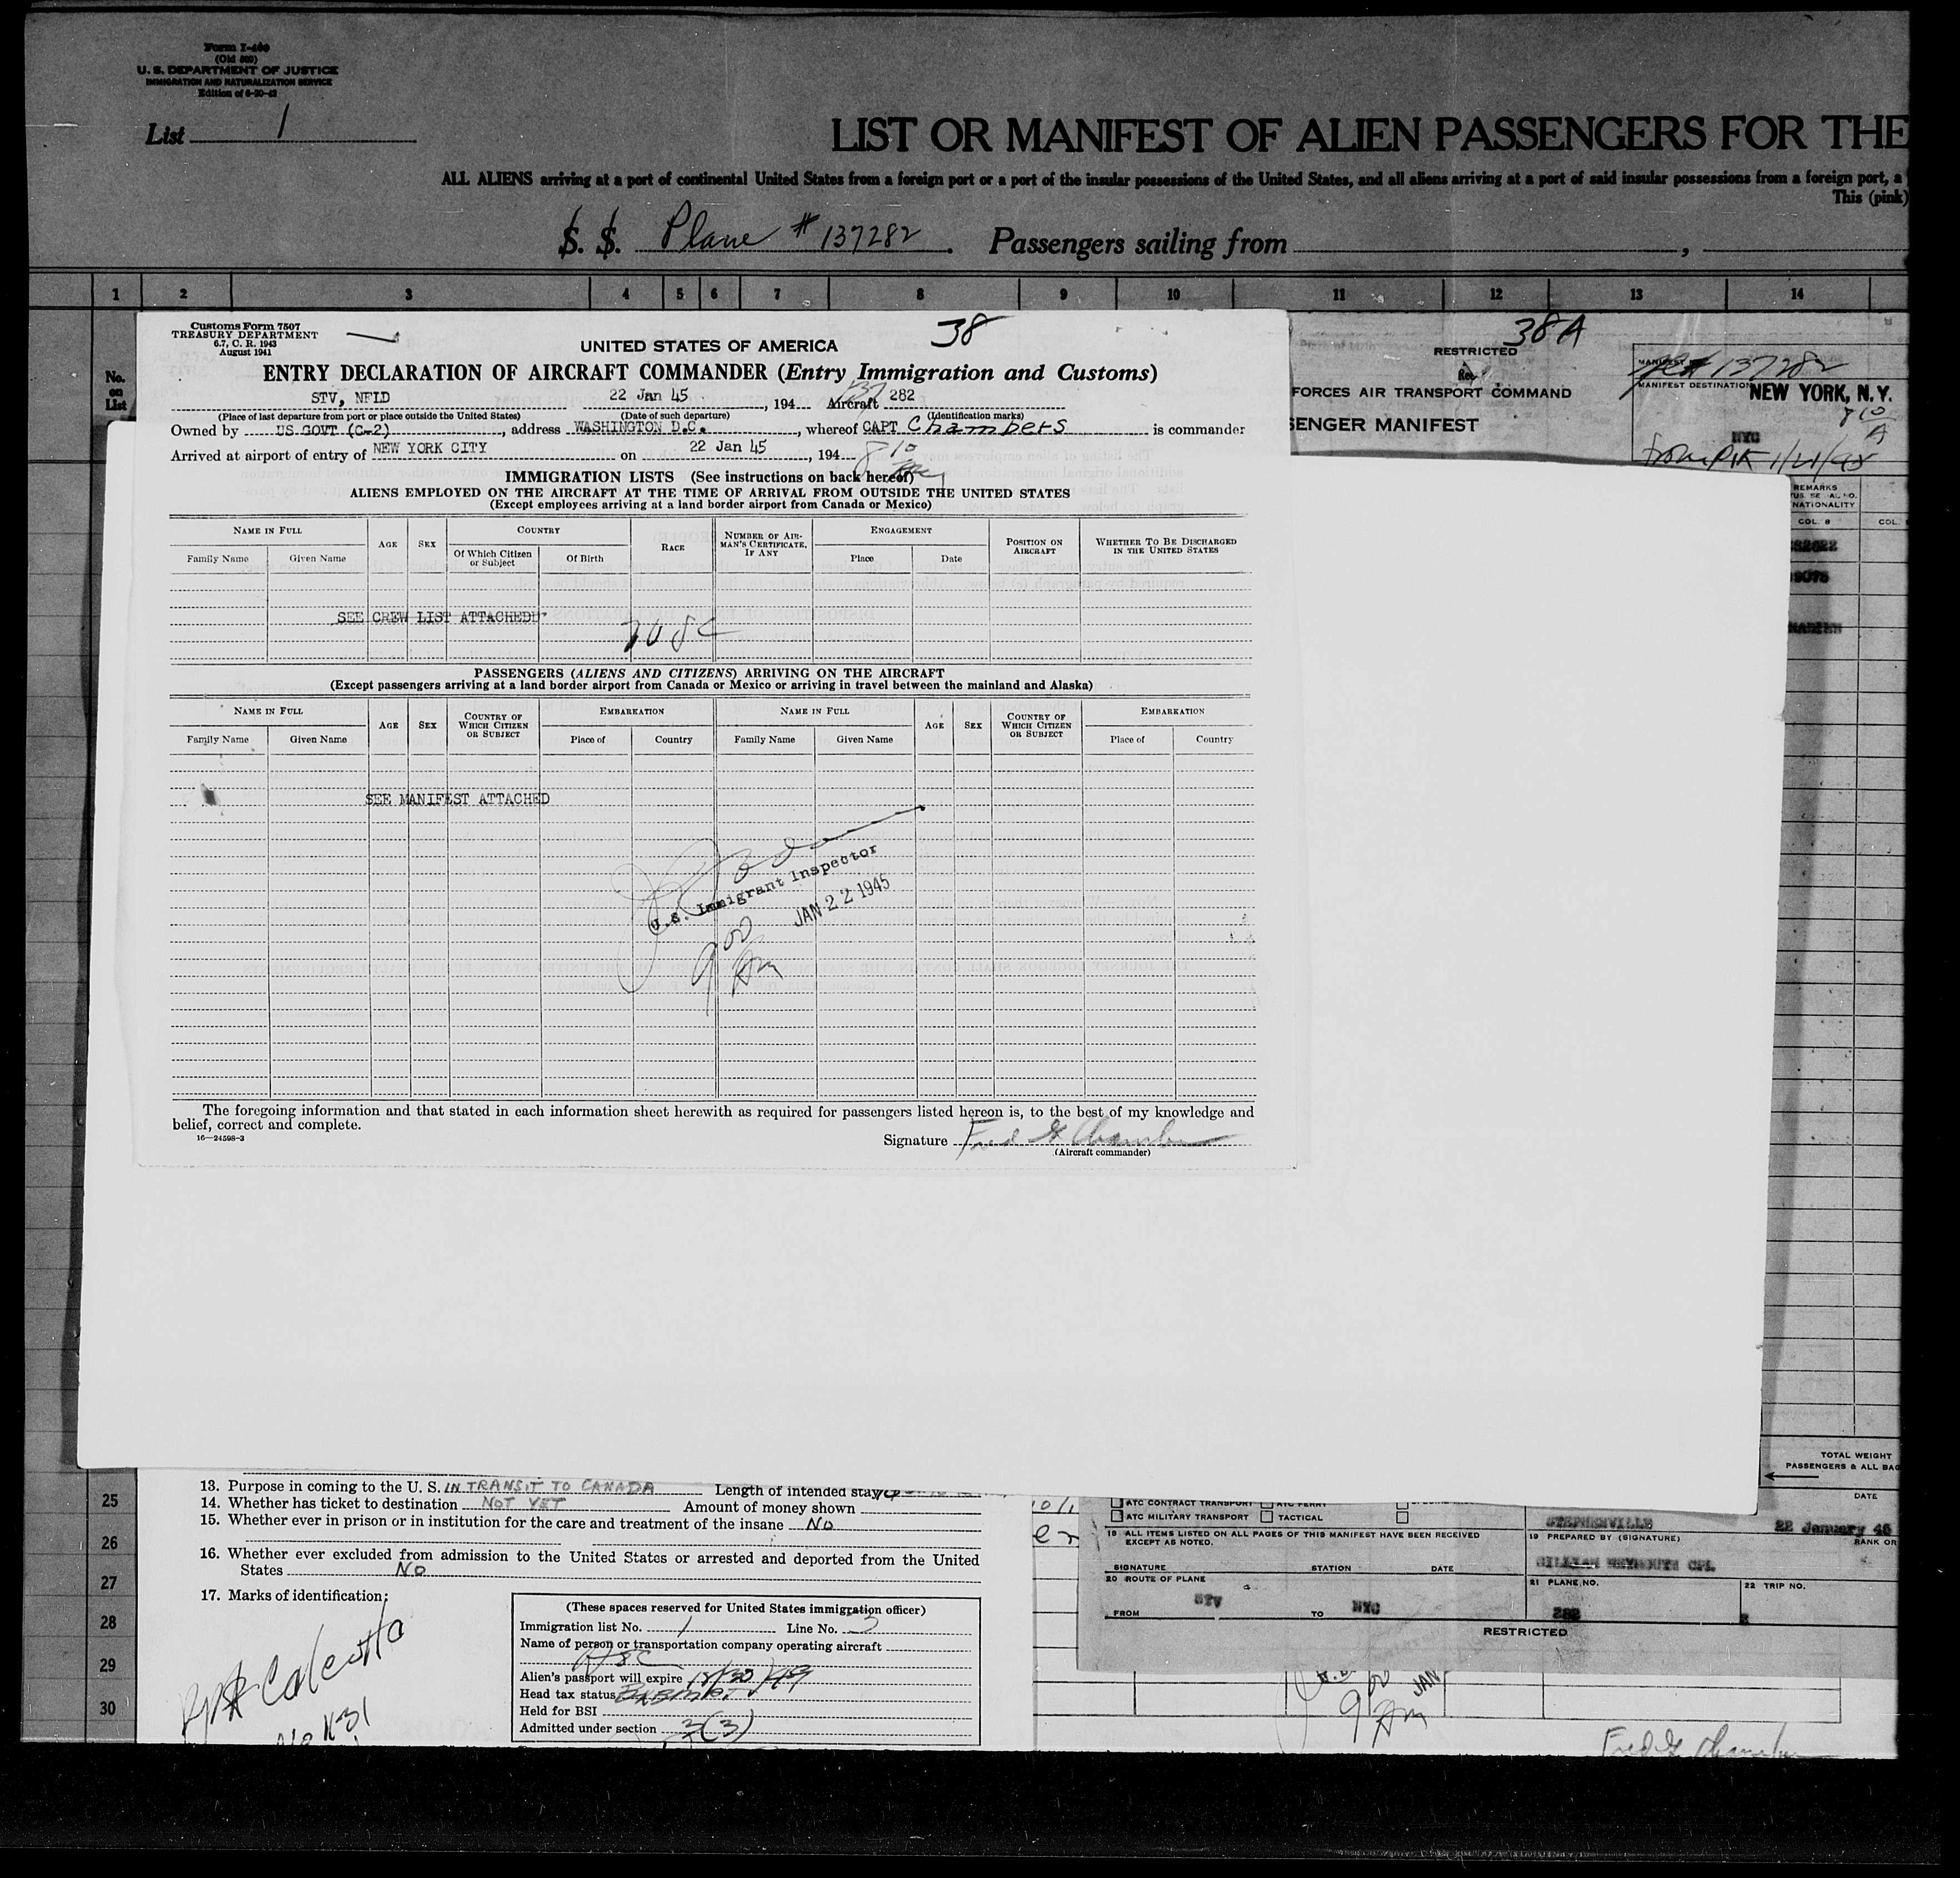 Form I-460
(Old 500)
U. S. DEPARTMENT OF JUSTICE
IMMIGRATION AND NATURALIZATION SERVICE
Edition of 6-20-42
List 1
LIST OR MANIFEST OF ALIEN PASSENGERS FOR THE
ALL ALIENS arriving at a port of continental United States from a foreign port or a port of the insular possessions of the United States, and all aliens arriving at a port of said insular possessions from a foreign port, a
This (pink)
S. S. Plane # 137282 . Passengers sailing from ,
1 2 3 4 5 6 7 8 9 10 11 12 13 14
No. on List
Customs Form 7507
TREASURY DEPARTMENT
6.7, C. R. 1943
August 1941
38
UNITED STATES OF AMERICA
ENTRY DECLARATION OF AIRCRAFT COMMANDER (Entry Immigration and Customs)
STV, NFLD 22 Jan 45 , 194 Aircraft 137 282
(Place of last departure from port or place outside the United States) (Date of such departure) (Identification marks)
Owned by US GOVT (C-2) , address WASHINGTON D.C. , whereof CAPT Chambers is commander
Arrived at airport of entry of NEW YORK CITY on 22 Jan 45 , 194 8 10 Am
IMMIGRATION LISTS (See instructions on back hereof)
ALIENS EMPLOYED ON THE AIRCRAFT AT THE TIME OF ARRIVAL FROM OUTSIDE THE UNITED STATES
(Except employees arriving at a land border airport from Canada or Mexico)
NAME IN FULL AGE SEX COUNTRY RACE NUMBER OF AIRMAN'S CERTIFICATE, IF ANY ENGAGEMENT POSITION ON AIRCRAFT WHETHER TO BE DISCHARGED IN THE UNITED STATES
Family Name Given Name Of Which Citizen or Subject Of Birth Place Date
SEE CREW LIST ATTACHEDD
PASSENGERS (ALIENS AND CITIZENS) ARRIVING ON THE AIRCRAFT
(Except passengers arriving at a land border airport from Canada or Mexico or arriving in travel between the mainland and Alaska)
NAME IN FULL AGE SEX COUNTRY OF WHICH CITIZEN OR SUBJECT EMBARKATION NAME IN FULL AGE SEX COUNTRY OF WHICH CITIZEN OR SUBJECT EMBARKATION
Family Name Given Name Place of Country Family Name Given Name Place of Country
SEE MANIFEST ATTACHED
U.S. Immigrant Inspector
JAN 22 1945
9 00 Am
The foregoing information and that stated in each information sheet herewith as required for passengers listed hereon is, to the best of my knowledge and
belief, correct and complete.
16—24598-3
Signature Fred G Chambers
(Aircraft commander)
38A
RESTRICTED
Rec.
FORCES AIR TRANSPORT COMMAND
SENGER MANIFEST
MANIFEST
137282
MANIFEST DESTINATION NEW YORK, N.Y.
8 10 A
NYC
from 1/21/45
REMARKS
NATIONALITY
COL. 8 COL.
TOTAL WEIGHT
PASSENGERS & ALL BAG
DATE
25
26
27
28
29
30
13. Purpose in coming to the U. S. IN TRANSIT TO CANADA Length of intended stay
14. Whether has ticket to destination NOT YET Amount of money shown
15. Whether ever in prison or in institution for the care and treatment of the insane No
16. Whether ever excluded from admission to the United States or arrested and deported from the United
States No
17. Marks of identification:
Calcutta
(These spaces reserved for United States immigration officer)
Immigration list No. 1 Line No. 3
Name of person or transportation company operating aircraft
Alien's passport will expire
Head tax status
Held for BSI
Admitted under section 3(3)
ATC CONTRACT TRANSPORT ATC FERRY
ATC MILITARY TRANSPORT TACTICAL
18 ALL ITEMS LISTED ON ALL PAGES OF THIS MANIFEST HAVE BEEN RECEIVED
EXCEPT AS NOTED.
SIGNATURE STATION DATE
STEPHENVILLE 22 January 45
19 PREPARED BY (SIGNATURE) RANK OR
WILLIAM WEYMOUTH CPL.
20 ROUTE OF PLANE
FROM STV TO NYC
21 PLANE NO.
282
22 TRIP NO.
RESTRICTED
9 00 Am
JAN
Fred G Chambers